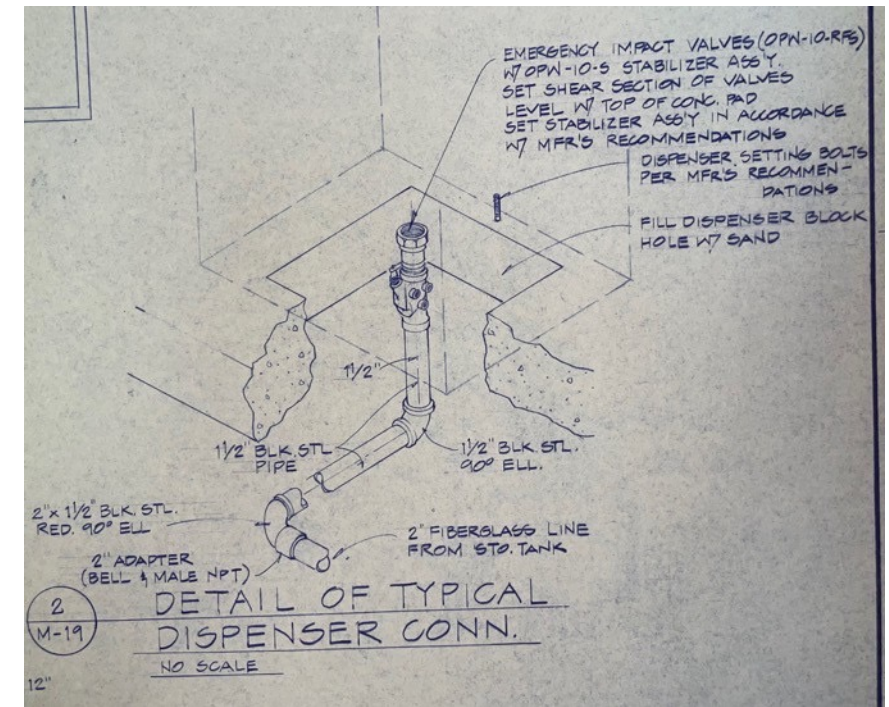 EMERGENCY IMPACT VALVES (OPW-10-RFS)
W/ OPW-10-S STABILIZER ASS'Y.
SET SHEAR SECTION OF VALVES
LEVEL W/ TOP OF CONC. PAD
SET STABILIZER ASS'Y IN ACCORDANCE
W/ MFR'S RECOMMENDATIONS
DISPENSER SETTING BOLTS
PER MFR'S RECOMMEN-
DATIONS
FILL DISPENSER BLOCK
HOLE W/ SAND
1 1/2"
1 1/2" BLK. STL.
PIPE
1 1/2" BLK. STL.
90° ELL.
2" x 1 1/2" BLK. STL.
RED. 90° ELL
2" FIBERGLASS LINE
FROM STO. TANK
2" ADAPTER
(BELL & MALE NPT)
2
M-19
DETAIL OF TYPICAL
DISPENSER CONN.
NO SCALE
12"